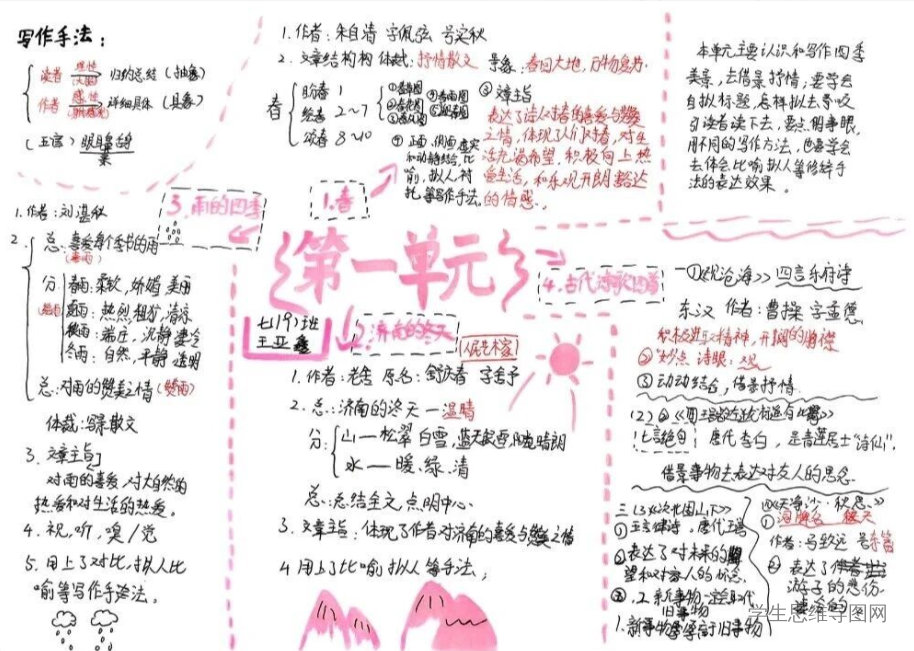 写作手法：
读者 理性 归纳总结（抽象）
作者 感性 详细具体（具象）
1.作者：朱自清 字佩弦 号实秋
2.文章结构 体裁：抒情散文 景象：春回大地，万物复苏.
春
盼春 1
绘春 2～7
颂春 8～10
①春草图
②春花图
③春风图
④春雨图
⑤迎春图
③文章主旨
表达了诗人对春的喜爱与赞美
之情，体现了人们对春，对生
活充满希望，积极向上热
爱生活，和乐观开朗豁达
的情感.
④正面、侧面、虚实
和动静结合，比
喻，拟人，衬
托，等写作手法.
1.春
本单元主要认识和写作四季
美景，去借景抒情；要学会
自拟标题，怎样拟去导咬
引读者读下去，要点明事眼，
用不同的写作方法，也要学会
去体会比喻拟人等修辞手
法的表达效果。
3.雨的四季
1.作者：刘湛秋
2.
总：喜爱每个季节的雨
分：
春雨：柔软，娇媚，美丽
夏雨：热烈，粗犷，
秋雨：端庄，沉静
冬雨：自然，平静
总：对雨的赞美之情（赞雨）
体裁：写景散文
3.文章主旨
对雨的喜爱，对大自然的
热爱和对生活的热爱。
4.视，听，嗅/觉
5.用上了对比，拟人比
喻等写作手法。
第一单元
七19)班
王亚鑫
2.济南的冬天
人民艺术家
1.作者：老舍 原名：舒庆春 字舍予
2.总：济南的冬天—温晴
分：
山—松翠 白雪，
水—暖、绿、清
总：总结全文，点明中心.
3.文章主旨：体现了作者对济南的喜爱与赞美之情
4 用上了比喻拟人等手法；
4.古代诗歌四首
一①《观沧海》 四言乐府诗
东汉 作者：曹操 字孟德
积极进取精神，开阔的胸襟
②妙点 诗眼：观
③动动结合，借景抒情.
七言绝句 唐代李白，是青莲居士“诗仙”.
借景事物去表达对友人的思念.
三、(3)《次北固山下》
①五言律诗，唐代王湾
②表达了对未来的
望和对家人的
旧事物
1.新事物
四《天净沙·秋思》
作者：马致远 号东篱
②表达了
游子的悲伤.
学生思维导图网